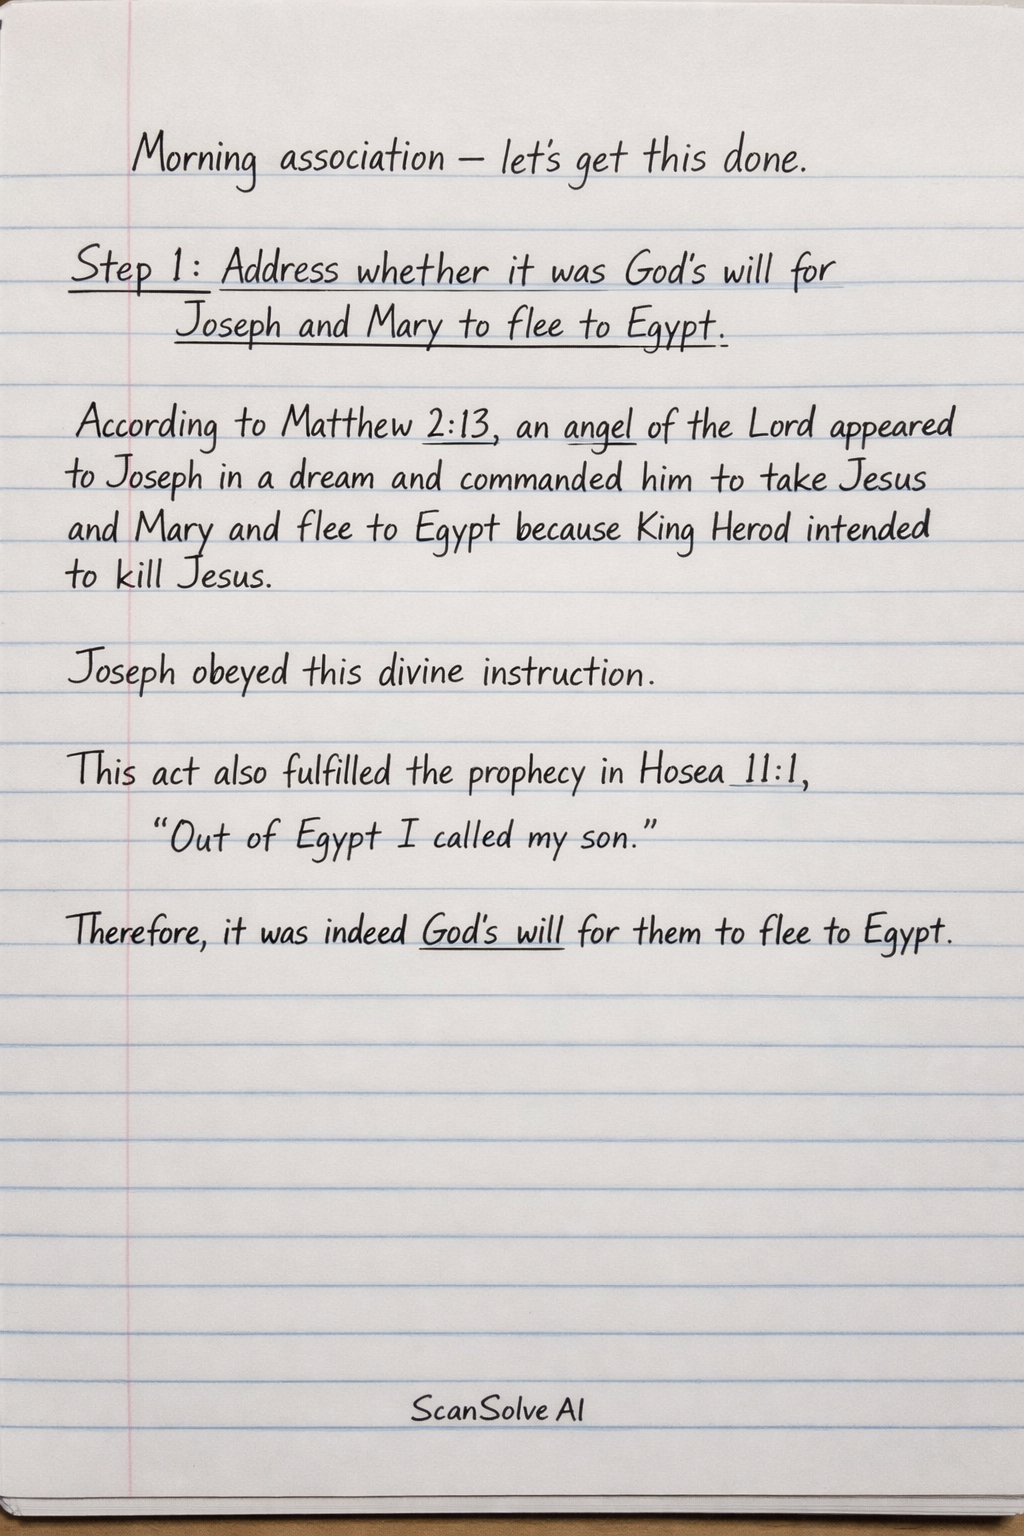 Morning association – let's get this done.
Step 1: Address whether it was God's will for
Joseph and Mary to flee to Egypt.
According to Matthew 2:13, an angel of the Lord appeared
to Joseph in a dream and commanded him to take Jesus
and Mary and flee to Egypt because King Herod intended
to kill Jesus.
Joseph obeyed this divine instruction.
This act also fulfilled the prophecy in Hosea 11:1,
“Out of Egypt I called my son.”
Therefore, it was indeed God's will for them to flee to Egypt.
ScanSolve AI